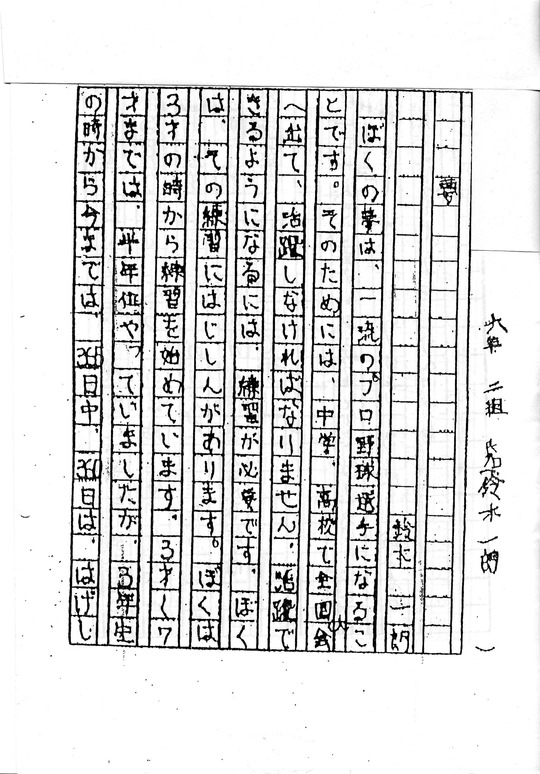 六年 二組 鈴木一朗
夢
鈴木 一朗
ぼくの夢は、一流のプロ野球選手になるこ
とです。そのためには、中学、高校で全国大会
へ出て、活躍しなければなりません。活躍で
きるようになるには、練習が必要です。ぼく
は、その練習にはじしんがあります。ぼくは
3才の時から練習を始めています。3才〜7
才までは、半年位やっていましたが、3年生
の時から今までは、365日中、360日は、はげし